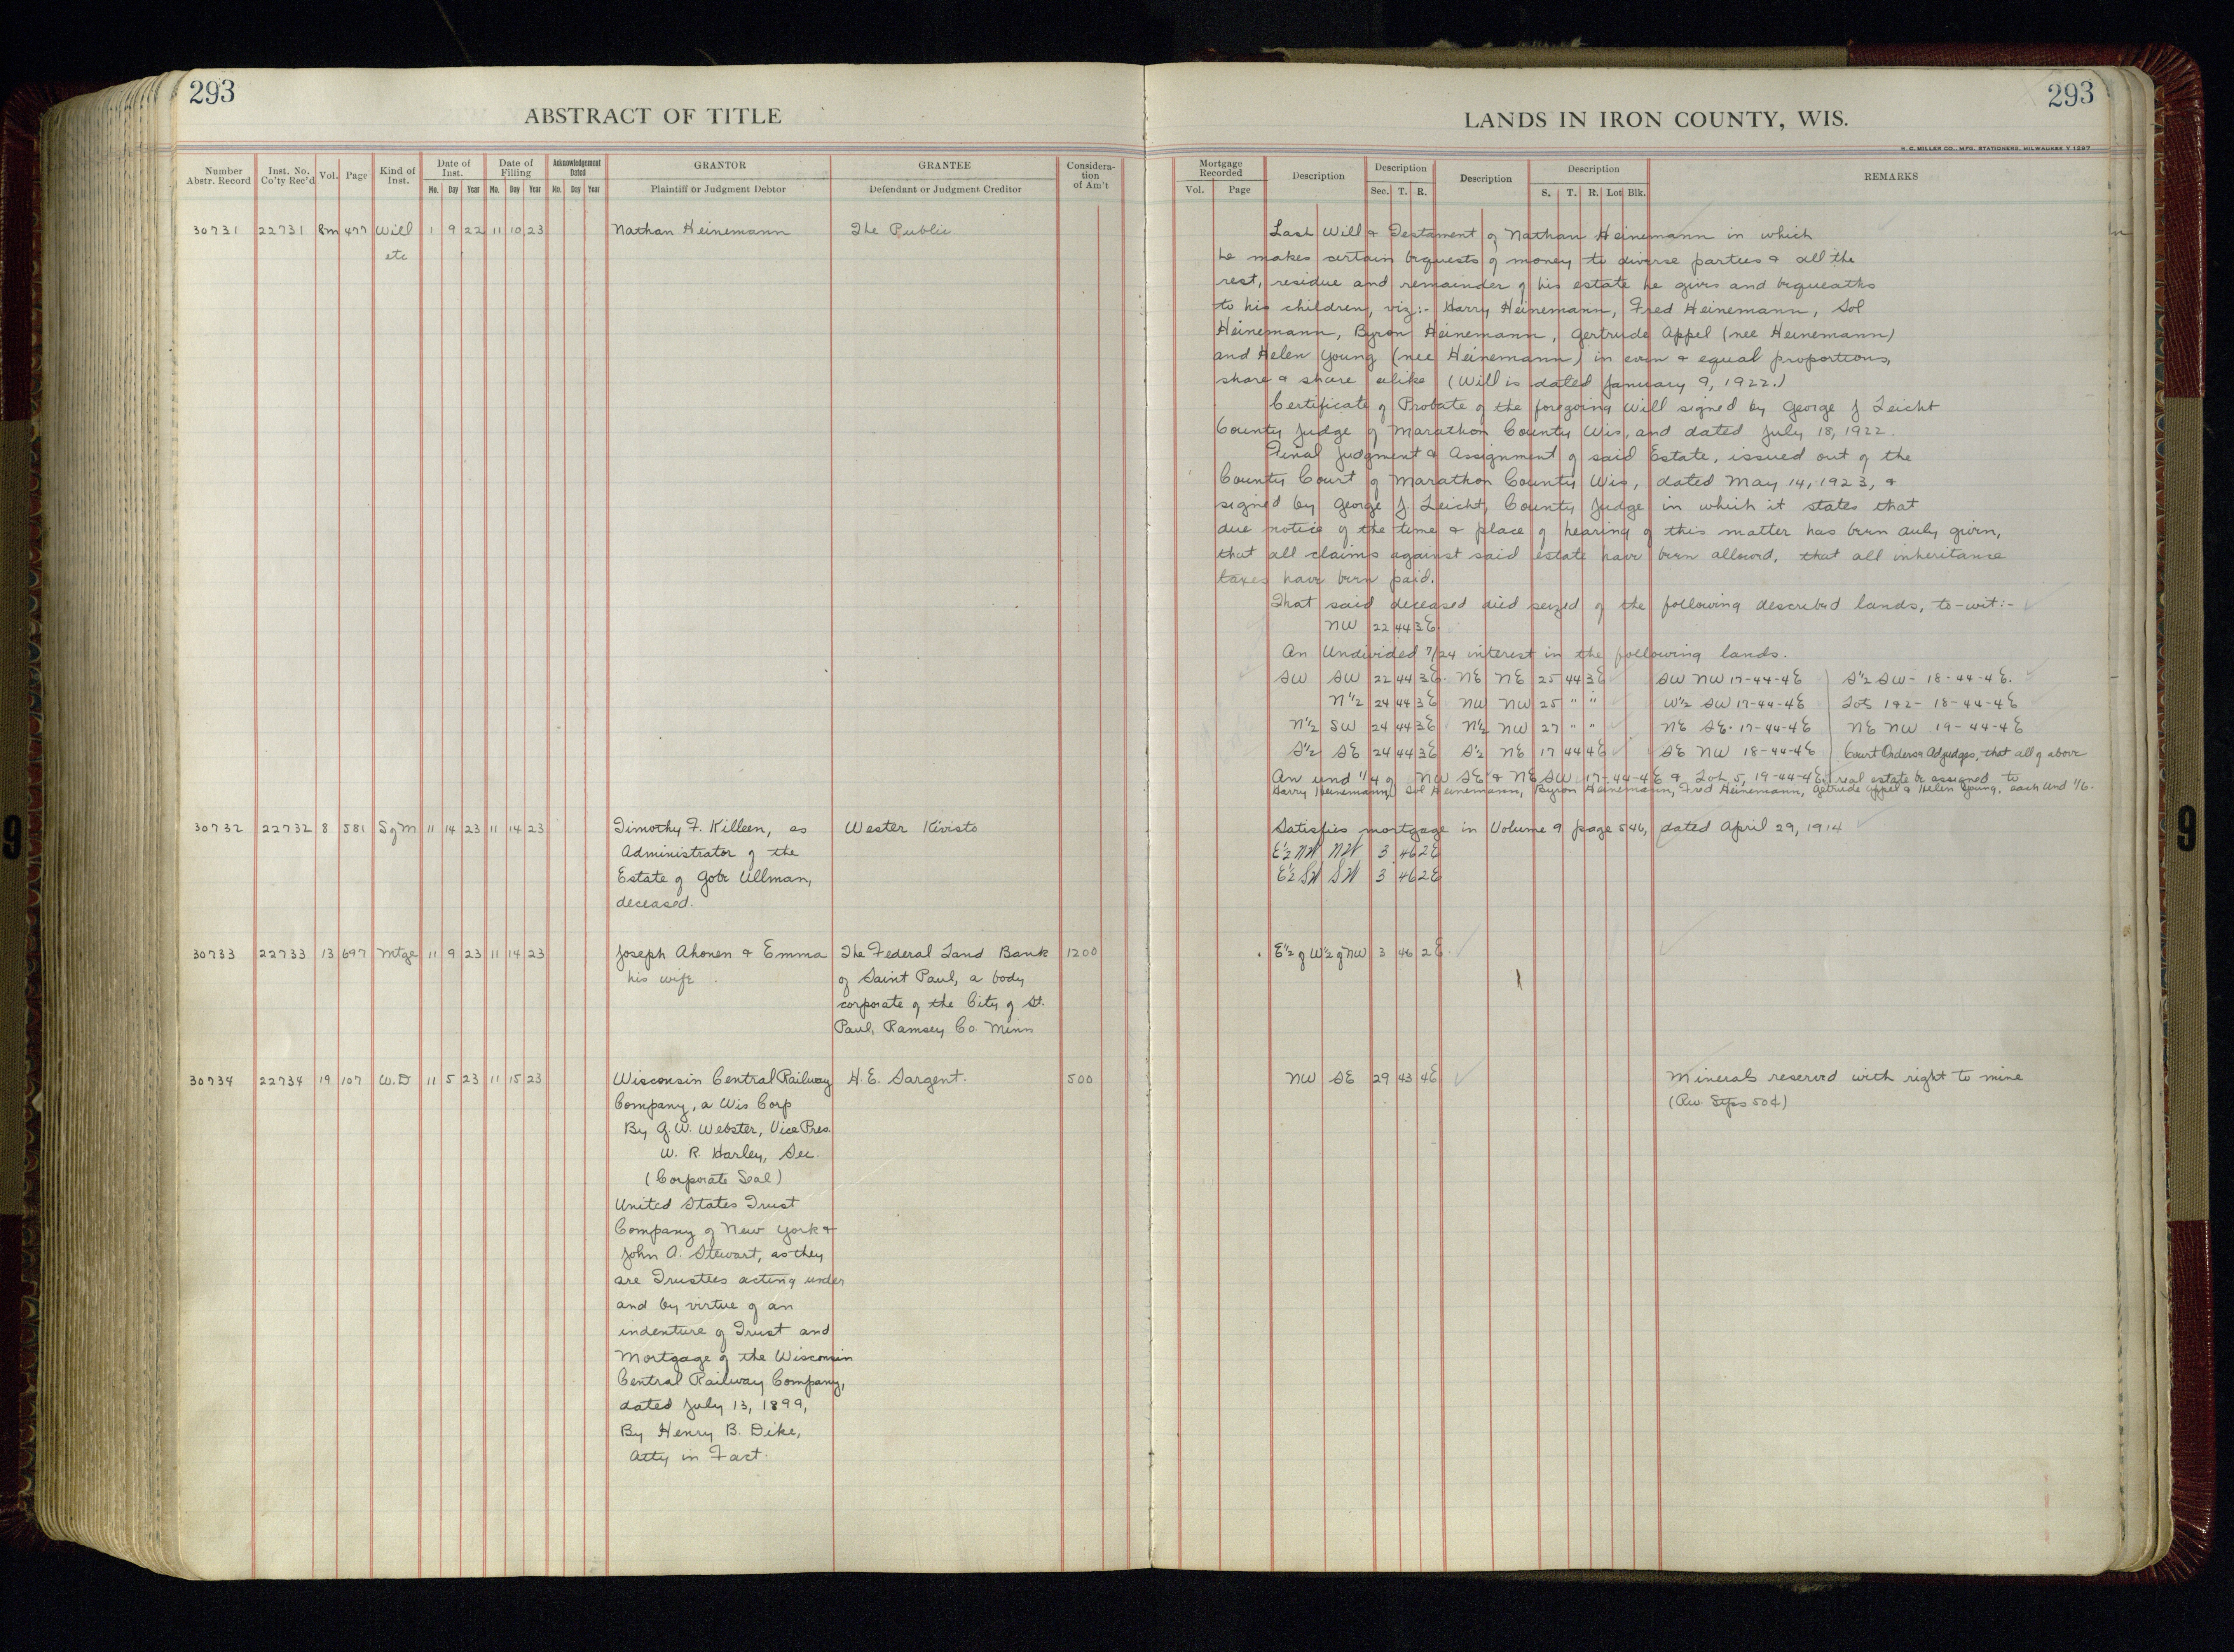 293
ABSTRACT OF TITLE
Number Abstr. Record
Inst. No. Co'ty Rec'd
Vol.
Page
Kind of Inst.
Date of Inst.
Mo. Day Year
Date of Filling
Mo. Day Year
Acknowledgement Dated
Mo. Day Year
GRANTOR
Plaintiff or Judgment Debtor
GRANTEE
Defendant or Judgment Creditor
Consideration of Am't
30731 22731 8m 477 Will 1 9 22 11 10 23 Nathan Heinemann The Public
etc
30732 22732 8 581 SgM 11 14 23 11 14 23 Timothy F. Killeen, as Wester Kivisto
Administrator of the
Estate of Gotr Ullman,
deceased.
30733 22733 13 697 Mtge 11 9 23 11 14 23 Joseph Ahonen & Emma The Federal Land Bank 1200
his wife of Saint Paul, a body
corporate of the City of St.
Paul, Ramsey Co. Minn
30734 22734 19 107 W.D 11 5 23 11 15 23 Wisconsin Central Railway H.E. Sargent. 500
Company, a Wis Corp
By G.W. Webster, Vice Pres.
W. R. Harley, Sec.
(Corporate Seal)
United States Trust
Company of New York &
John A. Stewart, as they
are Trustees acting under
and by virtue of an
indenture of Trust and
Mortgage of the Wisconsin
Central Railway Company,
dated July 13, 1899,
By Henry B. Dike,
Atty in Fact.
293
LANDS IN IRON COUNTY, WIS.
H. C. MILLER CO., MFG. STATIONERS, MILWAUKEE Y 1297
Mortgage Recorded
Vol. Page
Description
Description
Sec. T. R.
Description
Description
S. T. R. Lot Blk.
REMARKS
Last Will & Testament of Nathan Heinemann in which
he makes certain bequests of money to diverse parties & all the
rest, residue and remainder of his estate he gives and bequeaths
to his children, viz:- Harry Heinemann, Fred Heinemann, Sol
Heinemann, Byron Heinemann, Gertrude Appel (nee Heinemann)
and Helen Young (nee Heinemann) in even & equal proportions,
share & share alike (Will is dated January 9, 1922.)
Certificate of Probate of the foregoing Will signed by George J Leicht
County Judge of Marathon County Wis, and dated July 18, 1922.
Final Judgment & Assignment of said Estate, issued out of the
County Court of Marathon County Wis, dated May 14, 1923, &
signed by George J. Leicht, County Judge in which it states that
due notice of the time & place of hearing of this matter has been duly given,
that all claims against said estate have been allowed, that all inheritance
taxes have been paid.
That said deceased died seized of the following described lands, to-wit:-
NW 22 44 3E
An Undivided 7/24 interest in the following lands.
SW SW 22 44 3E. NE NE 25 44 3E SW NW 17-44-4E S½ SW- 18-44-4E.
N½ 24 44 3E NW NW 25 " " W½ SW 17-44-4E Lots 1&2- 18-44-4E
N½ SW 24 44 3E N½ NW 27 " " NE SE- 17-44-4E NE NW 19-44-4E
S½ SE 24 44 3E S½ NE 17 44 4E SE NW 18-44-4E Court Orders & Adjudges, that all of above
An und 1/4 of NW SE & NE SW 17-44-4E & Lot 5, 19-44-4E, real estate be assigned to
Harry Heinemann, Sol Heinemann, Byron Heinemann, Fred Heinemann, Getrude Appel & Helen Young, each und 1/6.
Satisfies mortgage in Volume 9 page 546, dated April 29, 1914
E½ NW NW 3 46 2E
E½ SW SW 3 46 2E
E½ of W½ of NW 3 46 2E
NW SE 29 43 4E Minerals reserved with right to mine
(Rev. Stps 50¢)
9
9